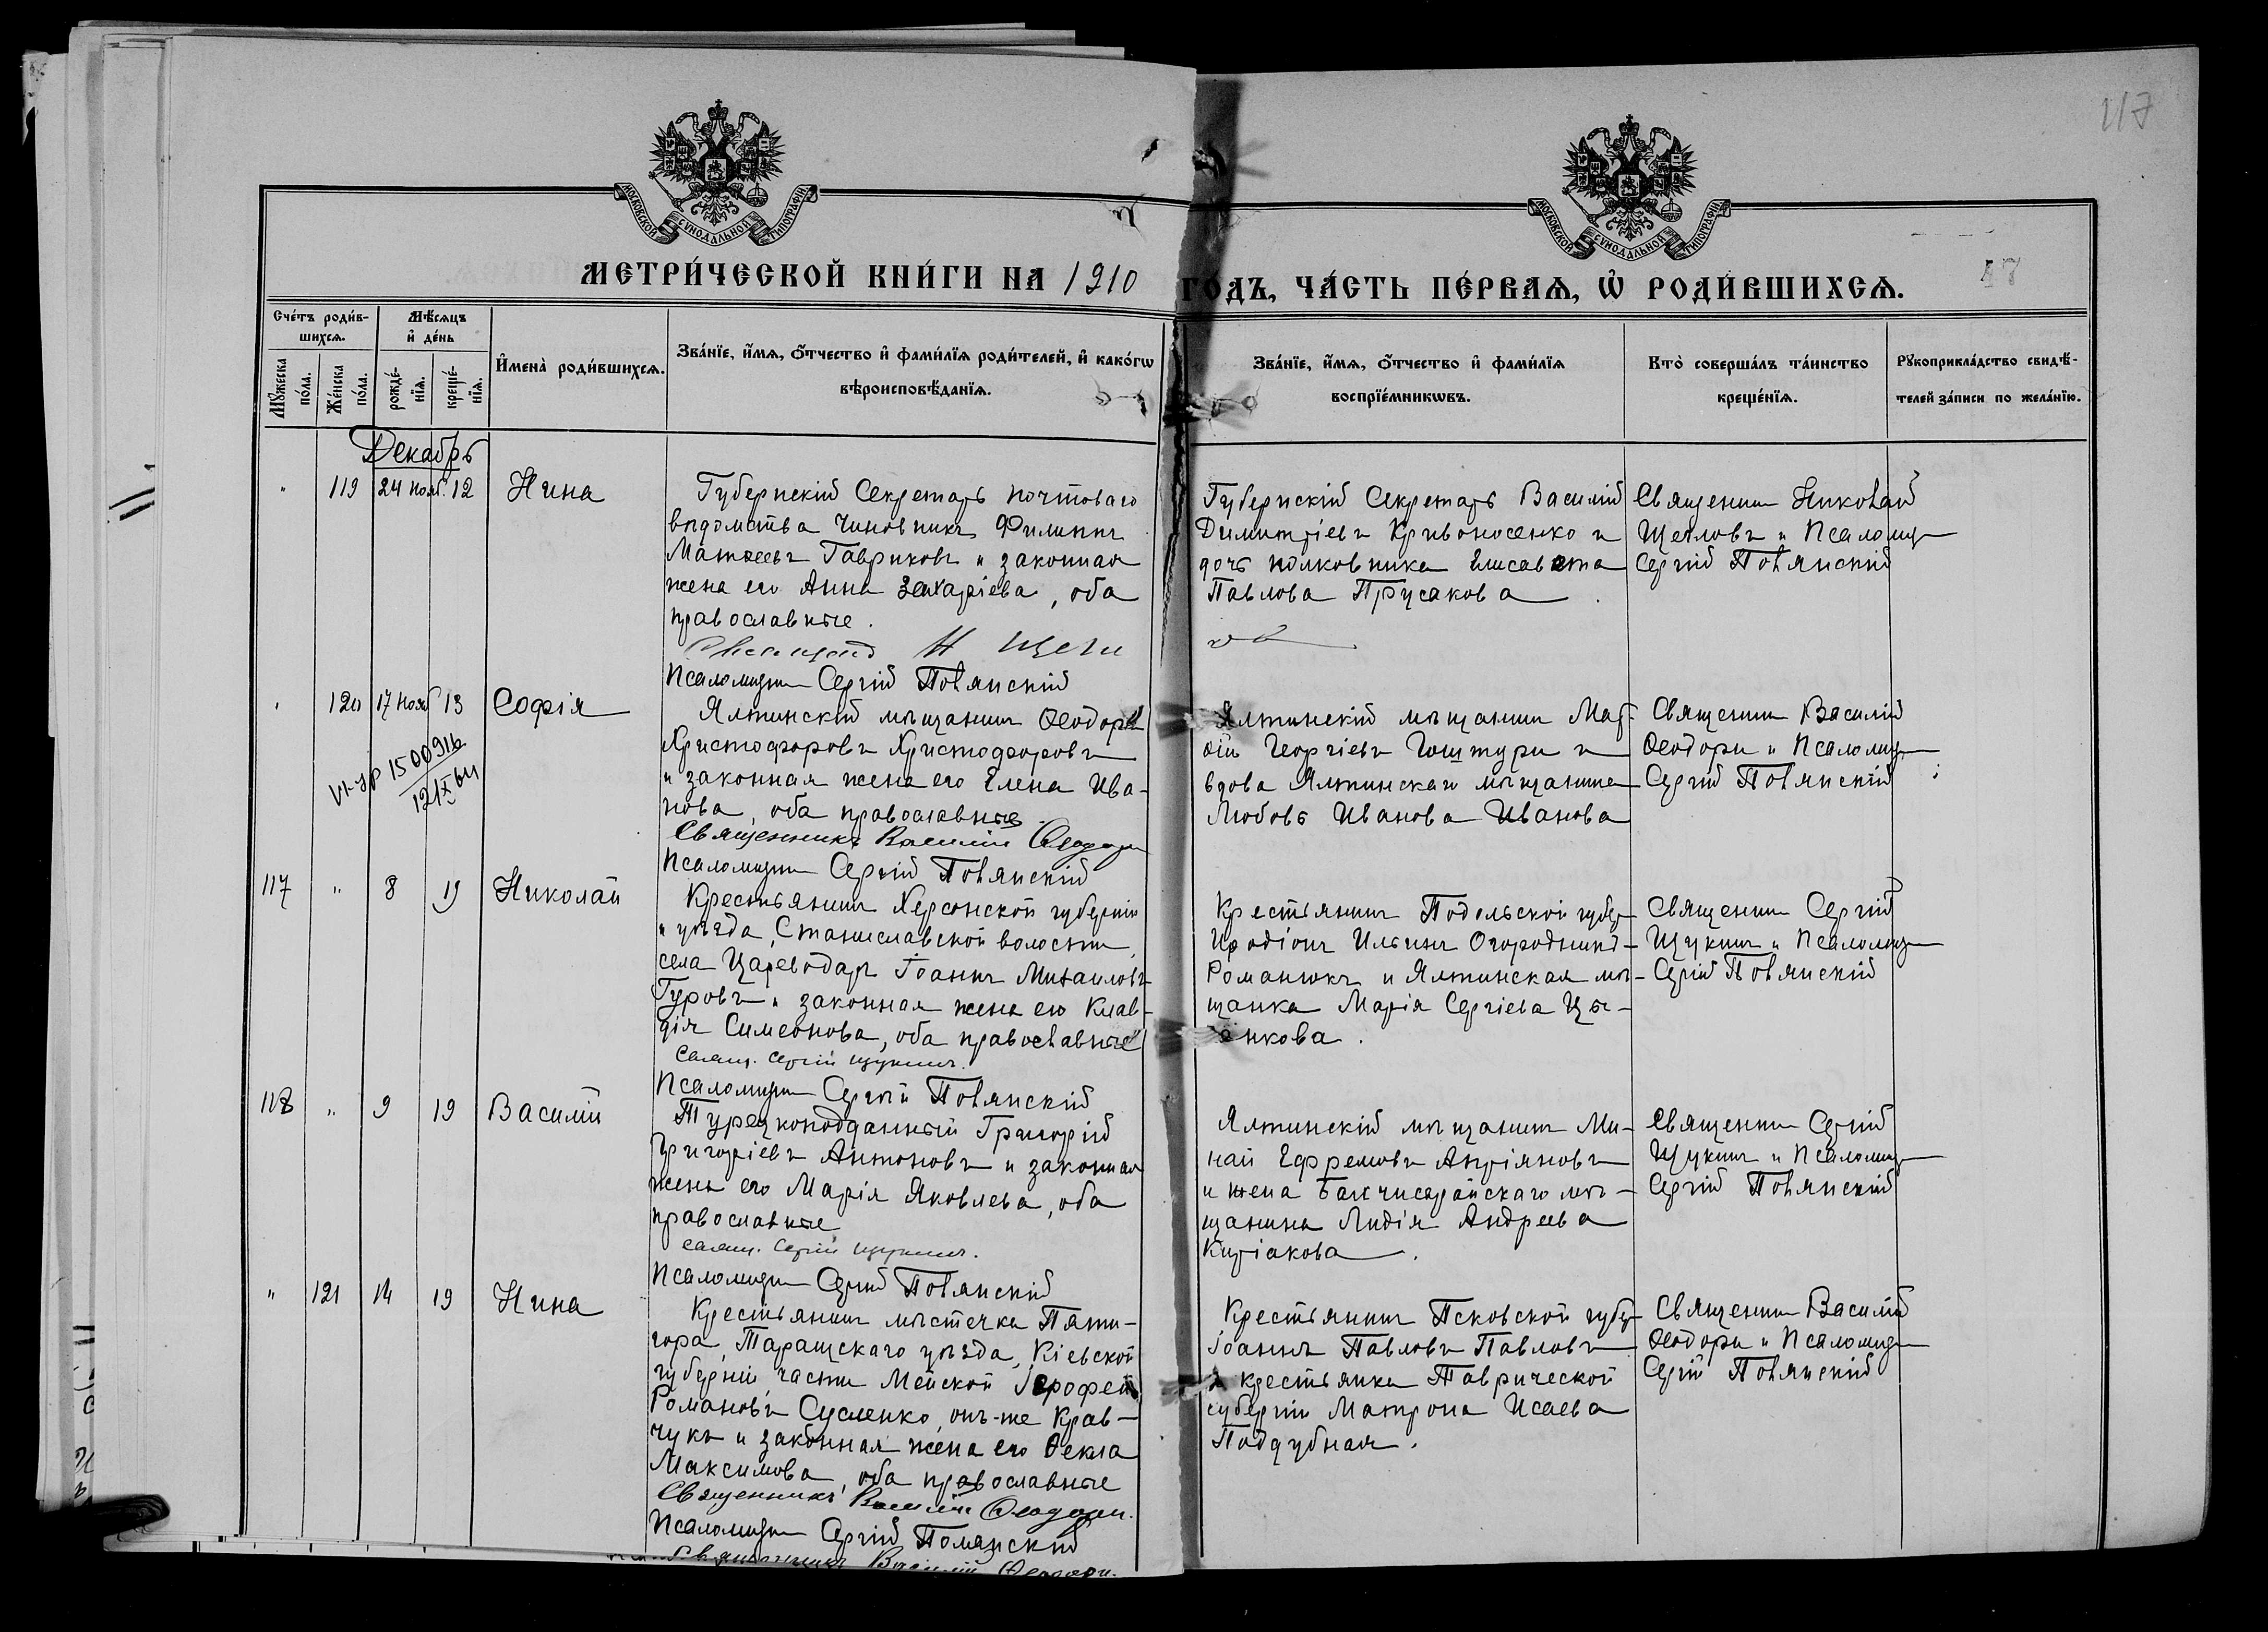 117
МОСКОВСКОЙ СѴНОДАЛЬНОЙ ТИПОГРАФІИ
МОСКОВСКОЙ СѴНОДАЛЬНОЙ ТИПОГРАФІИ
МЕТРИ́ЧЕСКОЙ КНИ́ГИ НА 1910 ГО́ДЪ, ЧА́СТЬ ПЕ́РВАѦ, Ѡ҆ РОДИ́ВШИХСѦ.
47
Сче́тъ роди́в-
шихсѧ.
Мꙋ́жеска
по́ла.
Же́нска
по́ла.
Мѣ́сѧцъ
и҆ де́нь
рожде́-
нїѧ.
креще́-
нїѧ.
И҆мена̀ роди́вшихсѧ.
Зва́нїе, и҆́мѧ, ѻ҆́тчество и҆ фами́лїѧ роди́телей, и҆ како́гѡ
вѣроисповѣ́данїѧ.
Зва́нїе, и҆́мѧ, ѻ҆́тчество и҆ фами́лїѧ
воспрїе́мникѡвъ.
Кто̀ соверша́лъ та́инство
креще́нїѧ.
Рꙋкоприкла́дство свидѣ́-
телей за́писи по жела́нїю.
Декабрь
" 119 24 нояб. 12 Нина
Губернскій Секретарь почтоваго
вѣдомства чиновникъ Филиппъ
Матѳеевъ Гавриковъ и законная
жена его Анна Захаріева, оба
православные.
Псаломщикъ Сергій Полянскій
Губернскій Секретарь Василій
Димитріевъ Кривоносенко и
дочь полковника Елисавета
Павлова Прусакова.
Священникъ Николай
Щегловъ и Псаломщ
Сергій Полянскій
120 17 нояб 13 Софія
1500916
12/X 64
Ялтинскій мѣщанинъ Ѳеодоръ
Христофоровъ Христофоровъ
и законная жена его Елена Ива-
нова, оба православные.
Священникъ Василій Ѳеодори
Псаломщикъ Сергій Полянскій
Ялтинскій мѣщанинъ
Георгіевъ и
вдова Ялтинскаго мѣщанина
Любовь Иванова Иванова
Священникъ Василій
Ѳеодори и Псаломщ
Сергій Полянскій
117 " 8 19 Николай
Крестьянинъ Херсонской губерніи
и уѣзда, Станиславской волости,
села Царeводаръ Іоаннъ Михаиловъ
Гуровъ и законная жена его Клав-
дія Симеонова, оба православные
Свящ. Сергій Щукинъ.
Псаломщикъ Сергій Полянскій
Крестьянинъ Подольской губер
Иродіонъ Ильинъ
Романюкъ и Ялтинская мѣ-
щанка Марія Сергіева Цы-
енкова.
Священникъ Сергій
Щукинъ и Псаломщ
Сергій Полянскій
118 " 9 19 Василій
Турецкоподданный Григорій
Григоріевъ Антоновъ и законная
жена его Марія Яковлева, оба
православные
Свящ. Сергій Щукинъ.
Псаломщикъ Сергій Полянскій
Ялтинскій мѣщанинъ Ми-
най Ефремовъ Андріяновъ
и жена Бахчисарайскаго мѣ-
щанина Лидія Андреева
Киріакова.
Священникъ Сергій
Щукинъ и Псаломщ
Сергій Полянскій
" 121 14 19 Нина
Крестьянинъ мѣстечка Пяти-
гора, Таращскаго уѣзда, Кіевской
губерніи части Мейской Іерофей
Романовъ Сусленко, онъ-же Крав-
чукъ и законная жена его Ѳекла
Максимова, оба православные
Священникъ Василій Ѳеодори.
Псаломщикъ Сергій Полянскій
Крестьянинъ Псковской губер
Іоаннъ Павловъ Павловъ
и крестьянка Таврической
губерніи Матрона Исаева
Поддубная.
Священникъ Василій
Ѳеодори и Псаломщ
Сергій Полянскій
Священникъ Василій Ѳеодори.